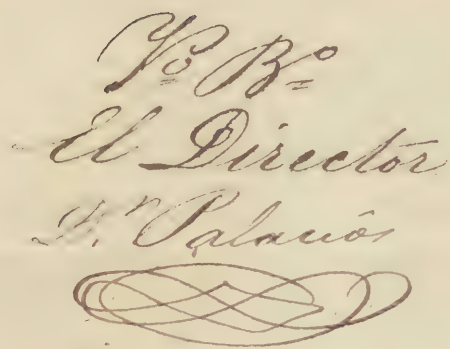 Vº Bº
El Director
F.n Palacios